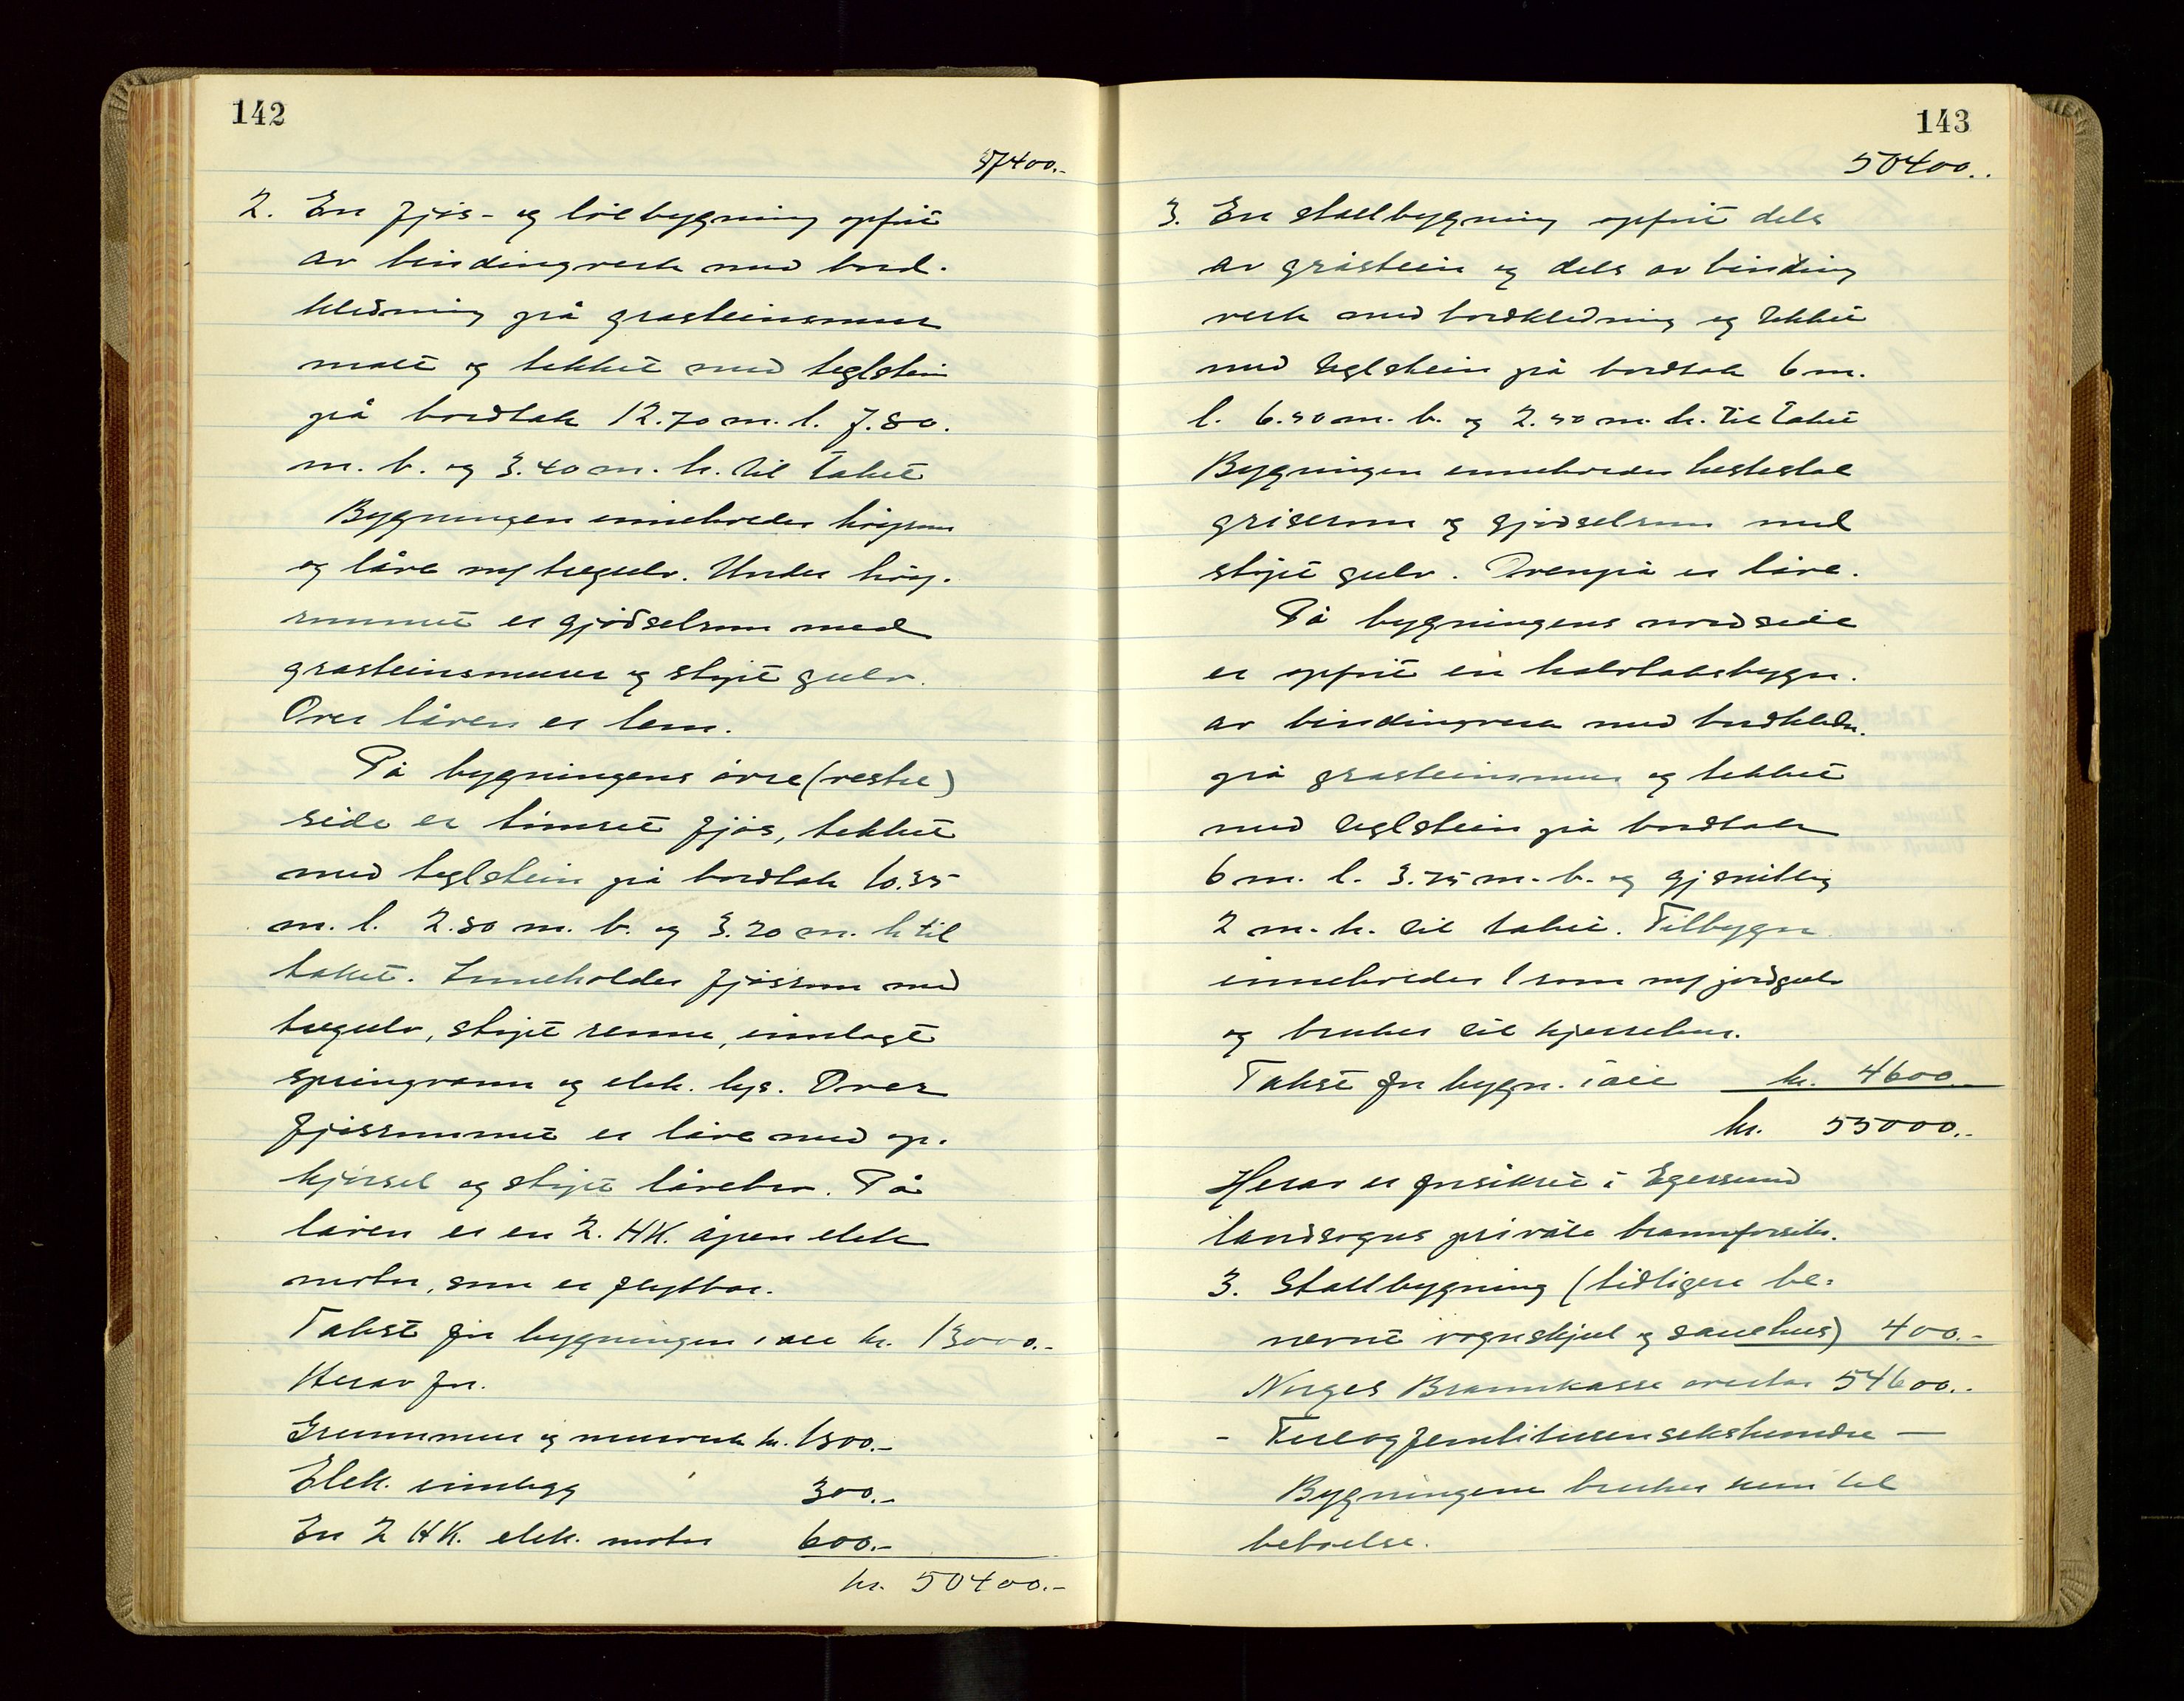 142
37400.-
2. En fjøs- og løebygning opført
av bindingverk med bord-
kledning på gråsteinsmur
malt og tekket med teglstein
på bordtak 12.70 m. l. 7.80.
m. b. og 3.40 m. h. til taket
Bygningen inneholder høyrum
og låve m/ tregulv. Under høy-
rummet er gjødselrum med
gråsteinsmurer og støpt gulv.
Over låven er lem.
På bygningens øvre (vestre)
side er timret fjøs, tekket
med teglstein på bordtak 10.35
m. l. 2.80 m. b. og 3.20 m. h til
taket. Inneholder fjøsrum med
tregulv, støpt renne, innlagt
springvann og elek. lys. Over
fjøsrummet er låve med op-
kjørsel og støpt lårebru. På
låven er en 2. HK. åpen elek
motor, som er flyttbar.
Takst for bygningen i alt kr. 13000.-
Herav for.
Grunnmur og murverk kr. 1500.-
Elek. innlegg 300.-
En 2 HK. elek. motor 600.-
kr. 50400.-
143
50400.-
3. En stallbygning opført dels
av gråstein og dels av binding
verk med bordkledning og tekket
med teglstein på bordtak 6 m.
l. 6.50 m. b. og 2.50 m. h. til taket
Bygningen inneholder hestestal
griserum og gjødselrum med
støpt gulv. Ovenpå er låve.
På bygningens nordside
er opført en halvtaksbygn.
av bindingverk med bordkledn.
på gråsteinsmur og tekket
med teglstein på bordtak
6 m. l. 3.75 m. b. og gjsnitlig
2 m. h. til taket. Tilbygn
inneholder 1 rom m/ jordgulv
og brukes til kjerrehus.
Takst for bygn. i alt kr. 4600.-
kr. 55000.-
Herav er forsikret i Egersund
landsogns private brannforsikr.
3. Stallbygning (tidligere be-
nevnt vognskjul og sauehus) 400.-
Norges Brannkasse overtar 54600.-
- Fireogfemtitusenseks hundre -
Bygningene brukes kun til
beboelse.